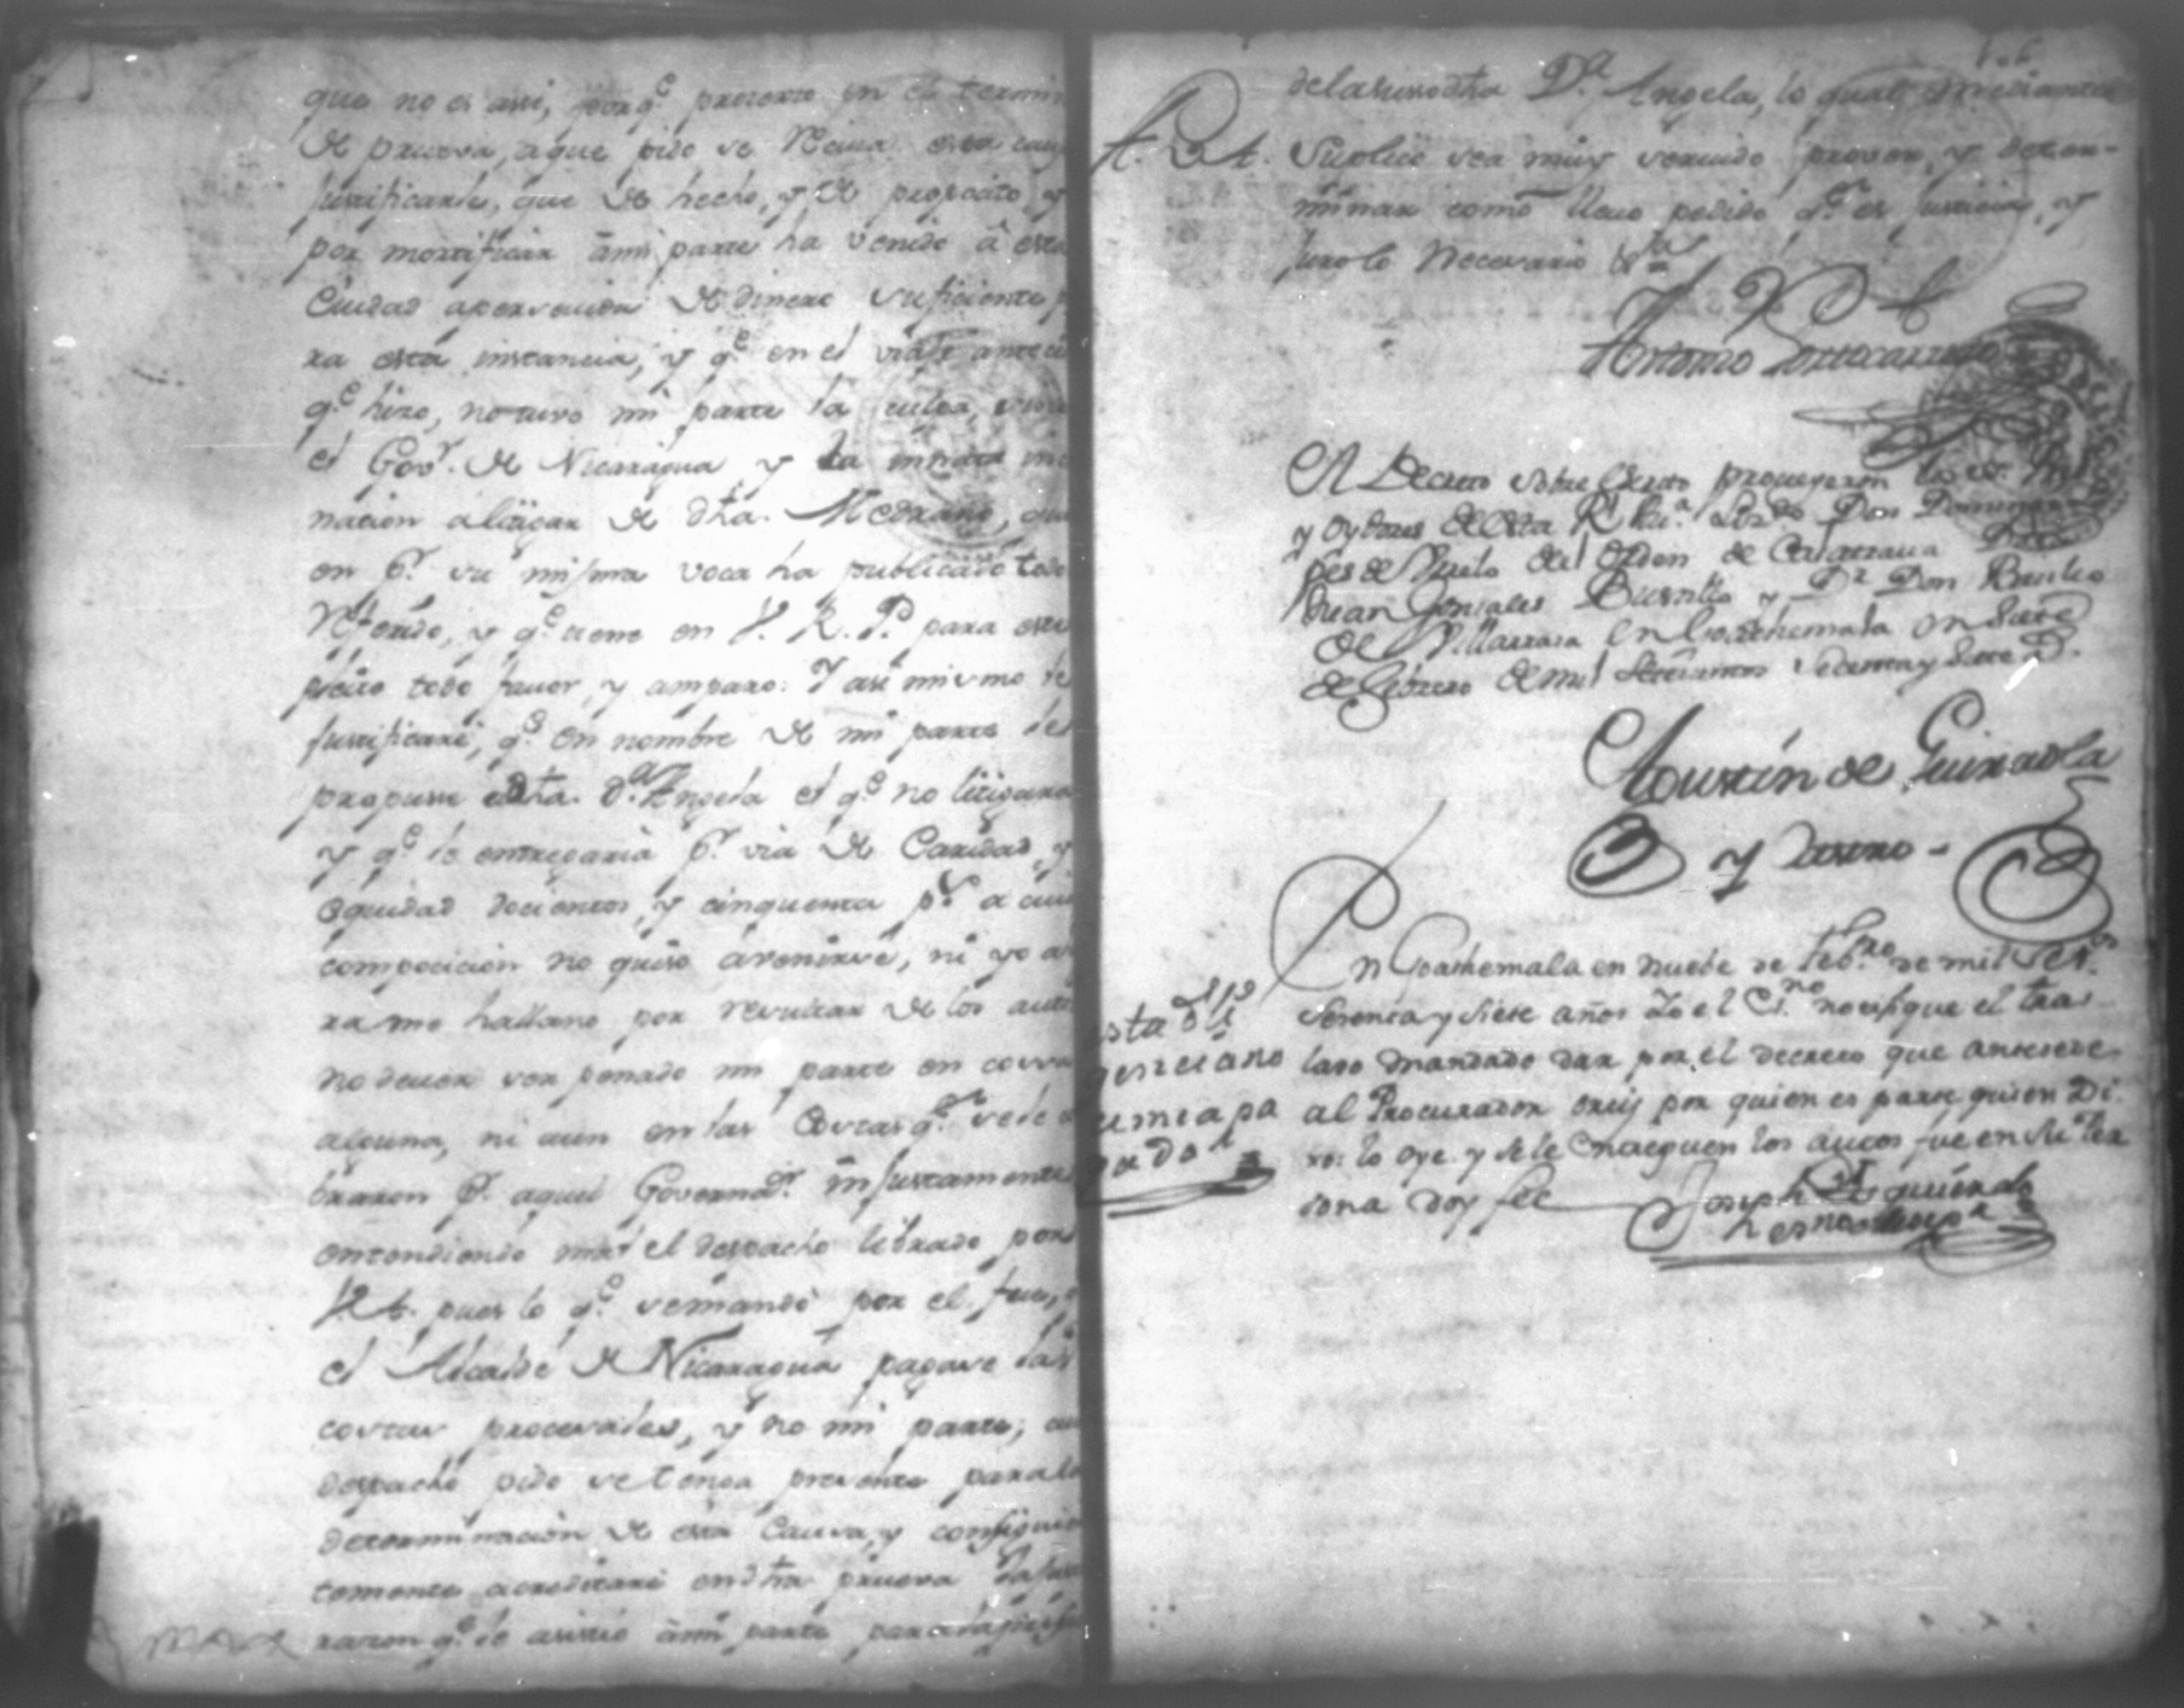 que no es assi, porq.e protexto en el termin
de prueva, aque pido se Reciva esta cau
justificarle, que de hecho, y de proposito, y
por mortificar âmi parte ha venido â esta
Ciudad apersevida de dinero suficiente p
ra esta instancia, y q.e en el viaje antece
q.e hizo, notuvo mi parte la culpa, sino
el Gov.r de Nicaragua y la innata incli
nacion a litigar de dha. Medrano, que
en p.r su misma voca ha publicado todo
Referido, y q.e tiene en V. R. P. para este
pleito todo favor, y amparo: Y asi mismo le
justificaré, q.e en nombre de mi parte le
propuse adha. D.a Angela el q.e no litigara
y q.e le entregaria p.r via de Caridad, y
equidad docientos, y cinquenta p.s a cuia
composicion no quiso avenirse, ni yo a
ra me hallano por resultar de los autos
no dever ser penado mi parte en cossa
alguna, ni aun en las Costas q.e sele co
braron p.r aquel Governad.r injustamente
entendiendo mal el despacho librado por
V.A. pues lo q.e semandó por el, fue, q
el Alcalde de Nicaragua pagase las
costas procesales, y no mi parte; cuio
despacho pido setenga presente parala
determinacion de esta Causa, y consiguien
temente acreditaré endha prueva la
razon q.e le asistió âmi parte para
delasusodha D.a Angela, lo qual mediante
A. V.A. Suplico sea muy servido proveer, y deter-
minar como llevo pedido q.e es justicia, y
juro lo Necesario &.a
Antonio Portocarrero
El Decreto sobre escrito proveyeron los ss.
y oydores de esta R.l Au.a Liz.do Don Domingo
Lopes de Urelo del Orden de Calatrava
Juan Gonzales Bustillo y D.r Don Basilio
de Villarrasa en Goathemala en siete
de febrero de mil Setecientos Setenta y Siete a.
Agustin de Guiraola
y Castro -
En Goathemala en nuebe de feb.ro de mil Set.s
Setenta y Siete años Yo el Es.no notifique el tras
lado mandado dar por el decreto que antesede
al Procurador por quien es parte quien Di
xo: lo oye y sele entreguen los autos fue en su Per
sona doy fee Joseph Ysquierdo